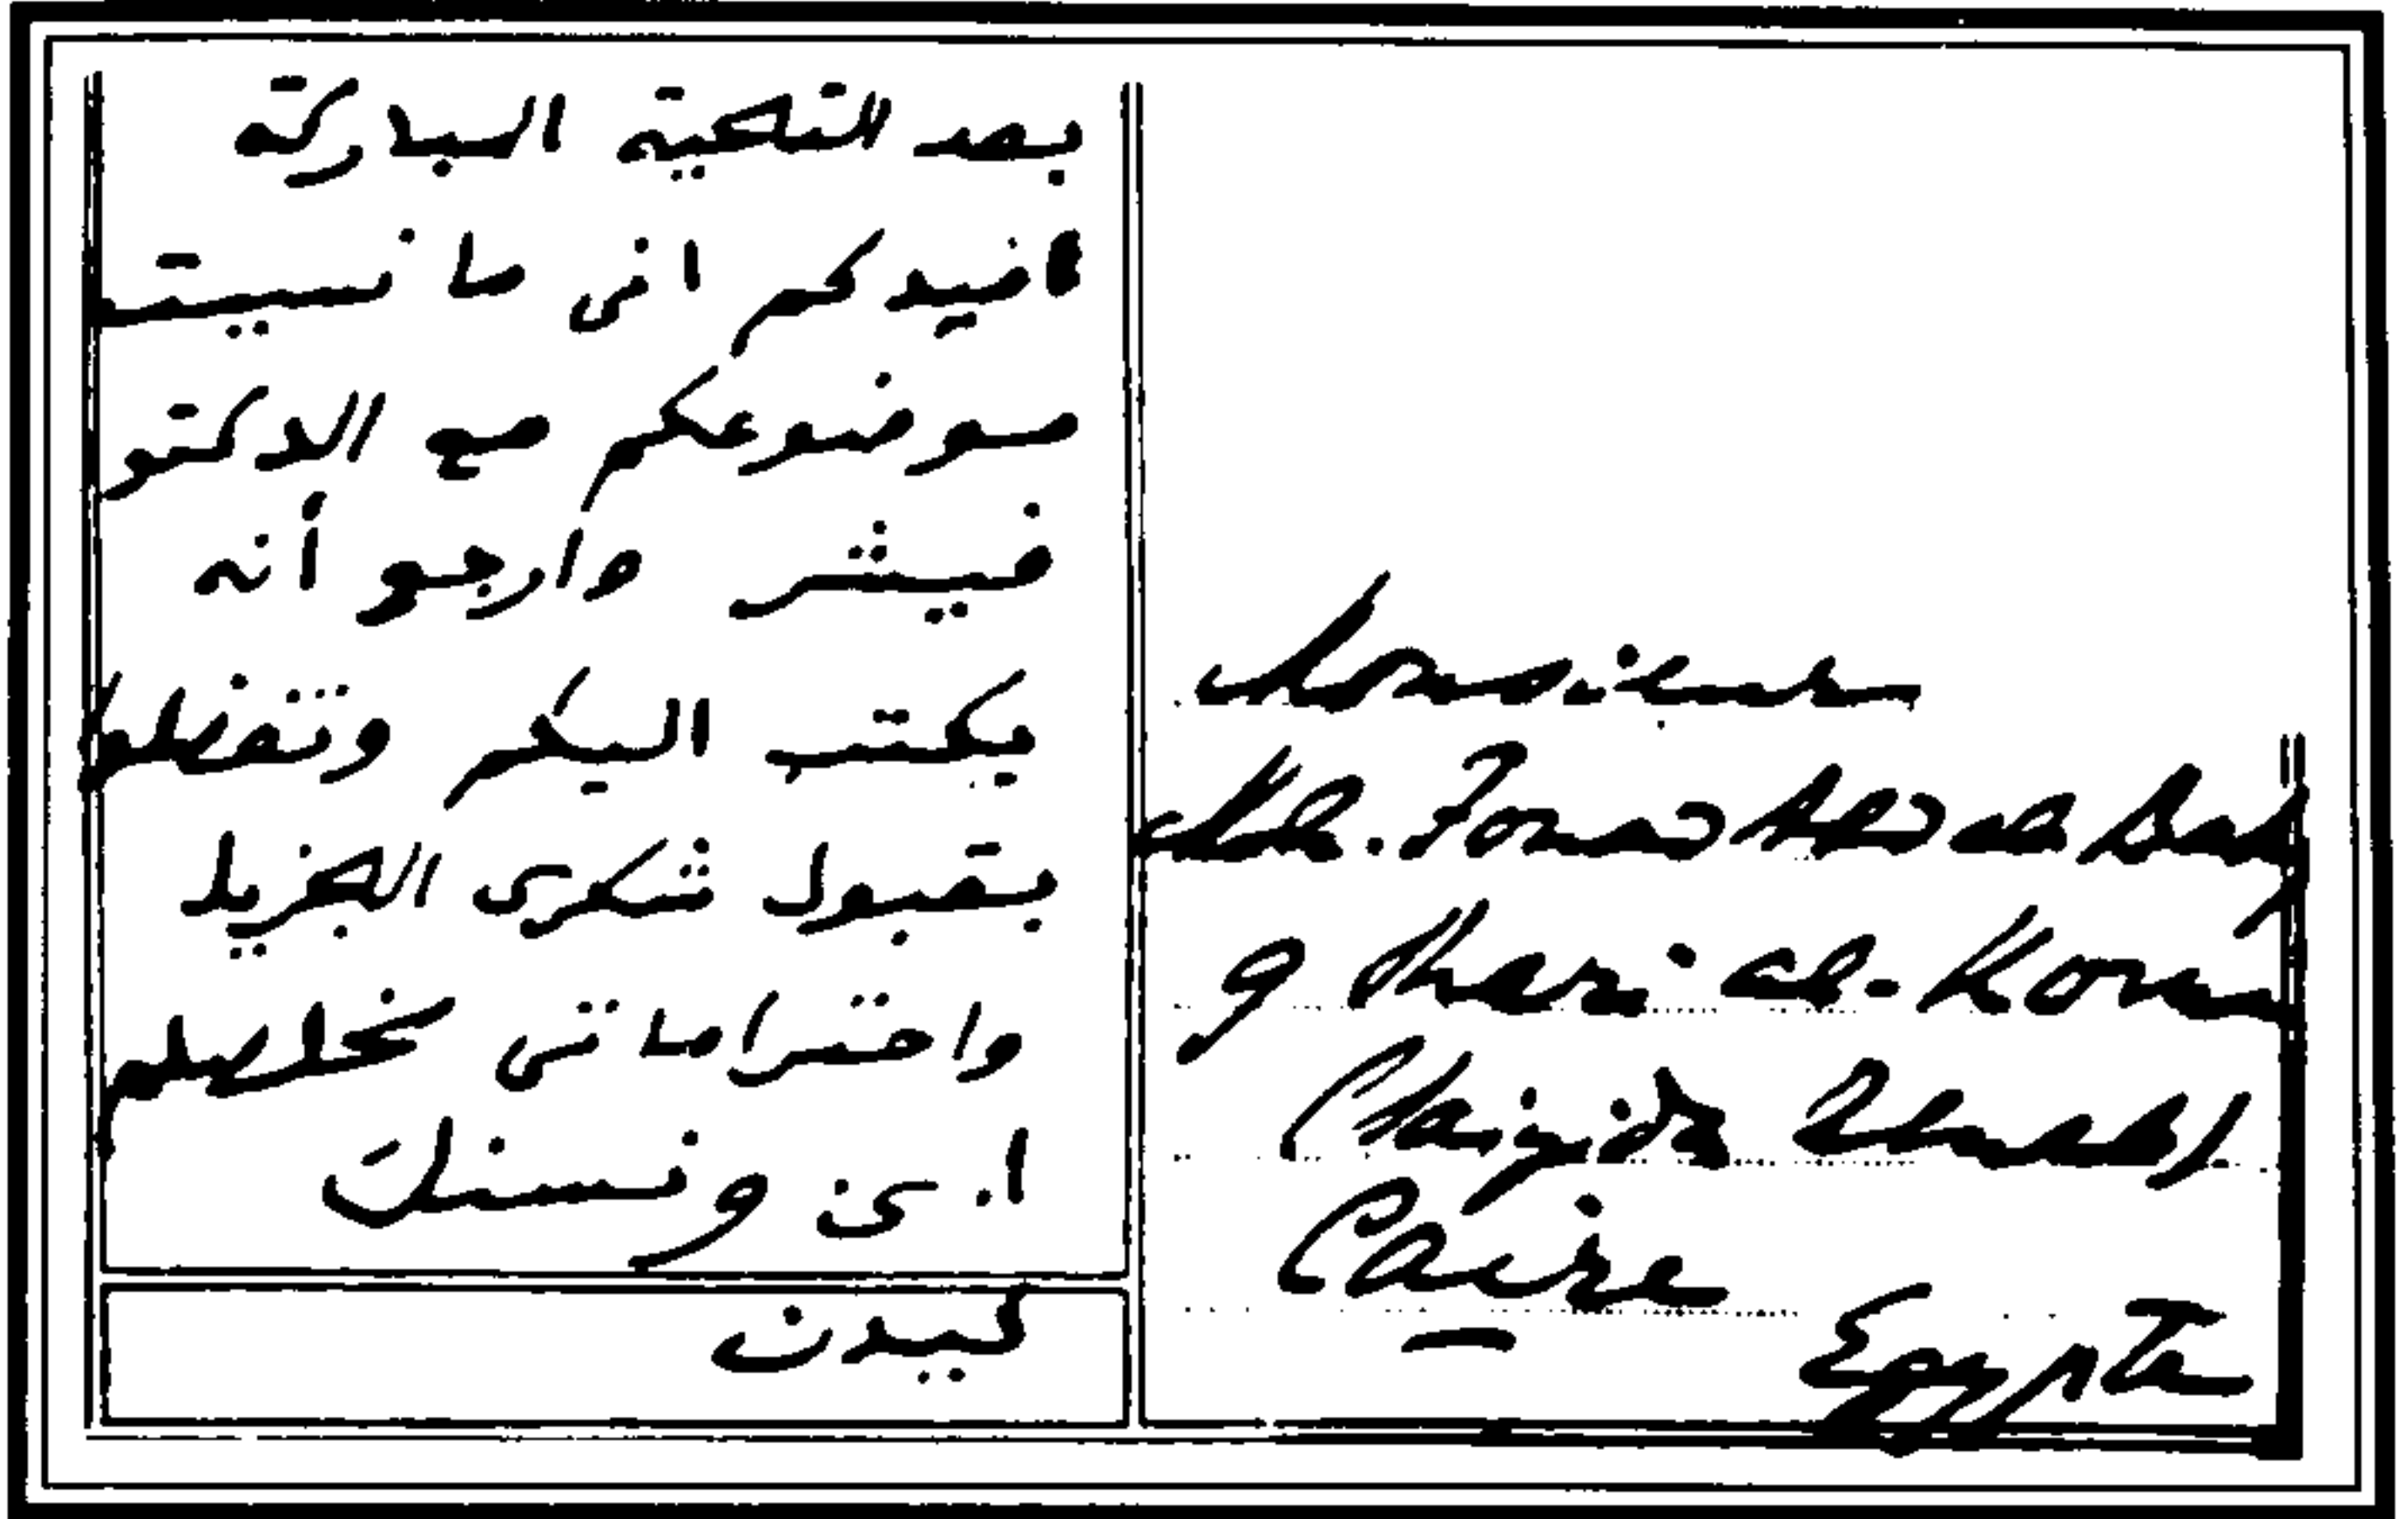 بعد التحية المباركة
افيدكم انى ما نسيت
موضوعكم مع الدكتور
فيشر وارجو أنه
يكتب اليكم وتفضلوا
بقبول شكرى الجزيل
واحتراماتى مخلصكم
ا. ى ونسنك
ليدن
Monsieur
M. Fouad
9 Chari el-
Caire
Egypte